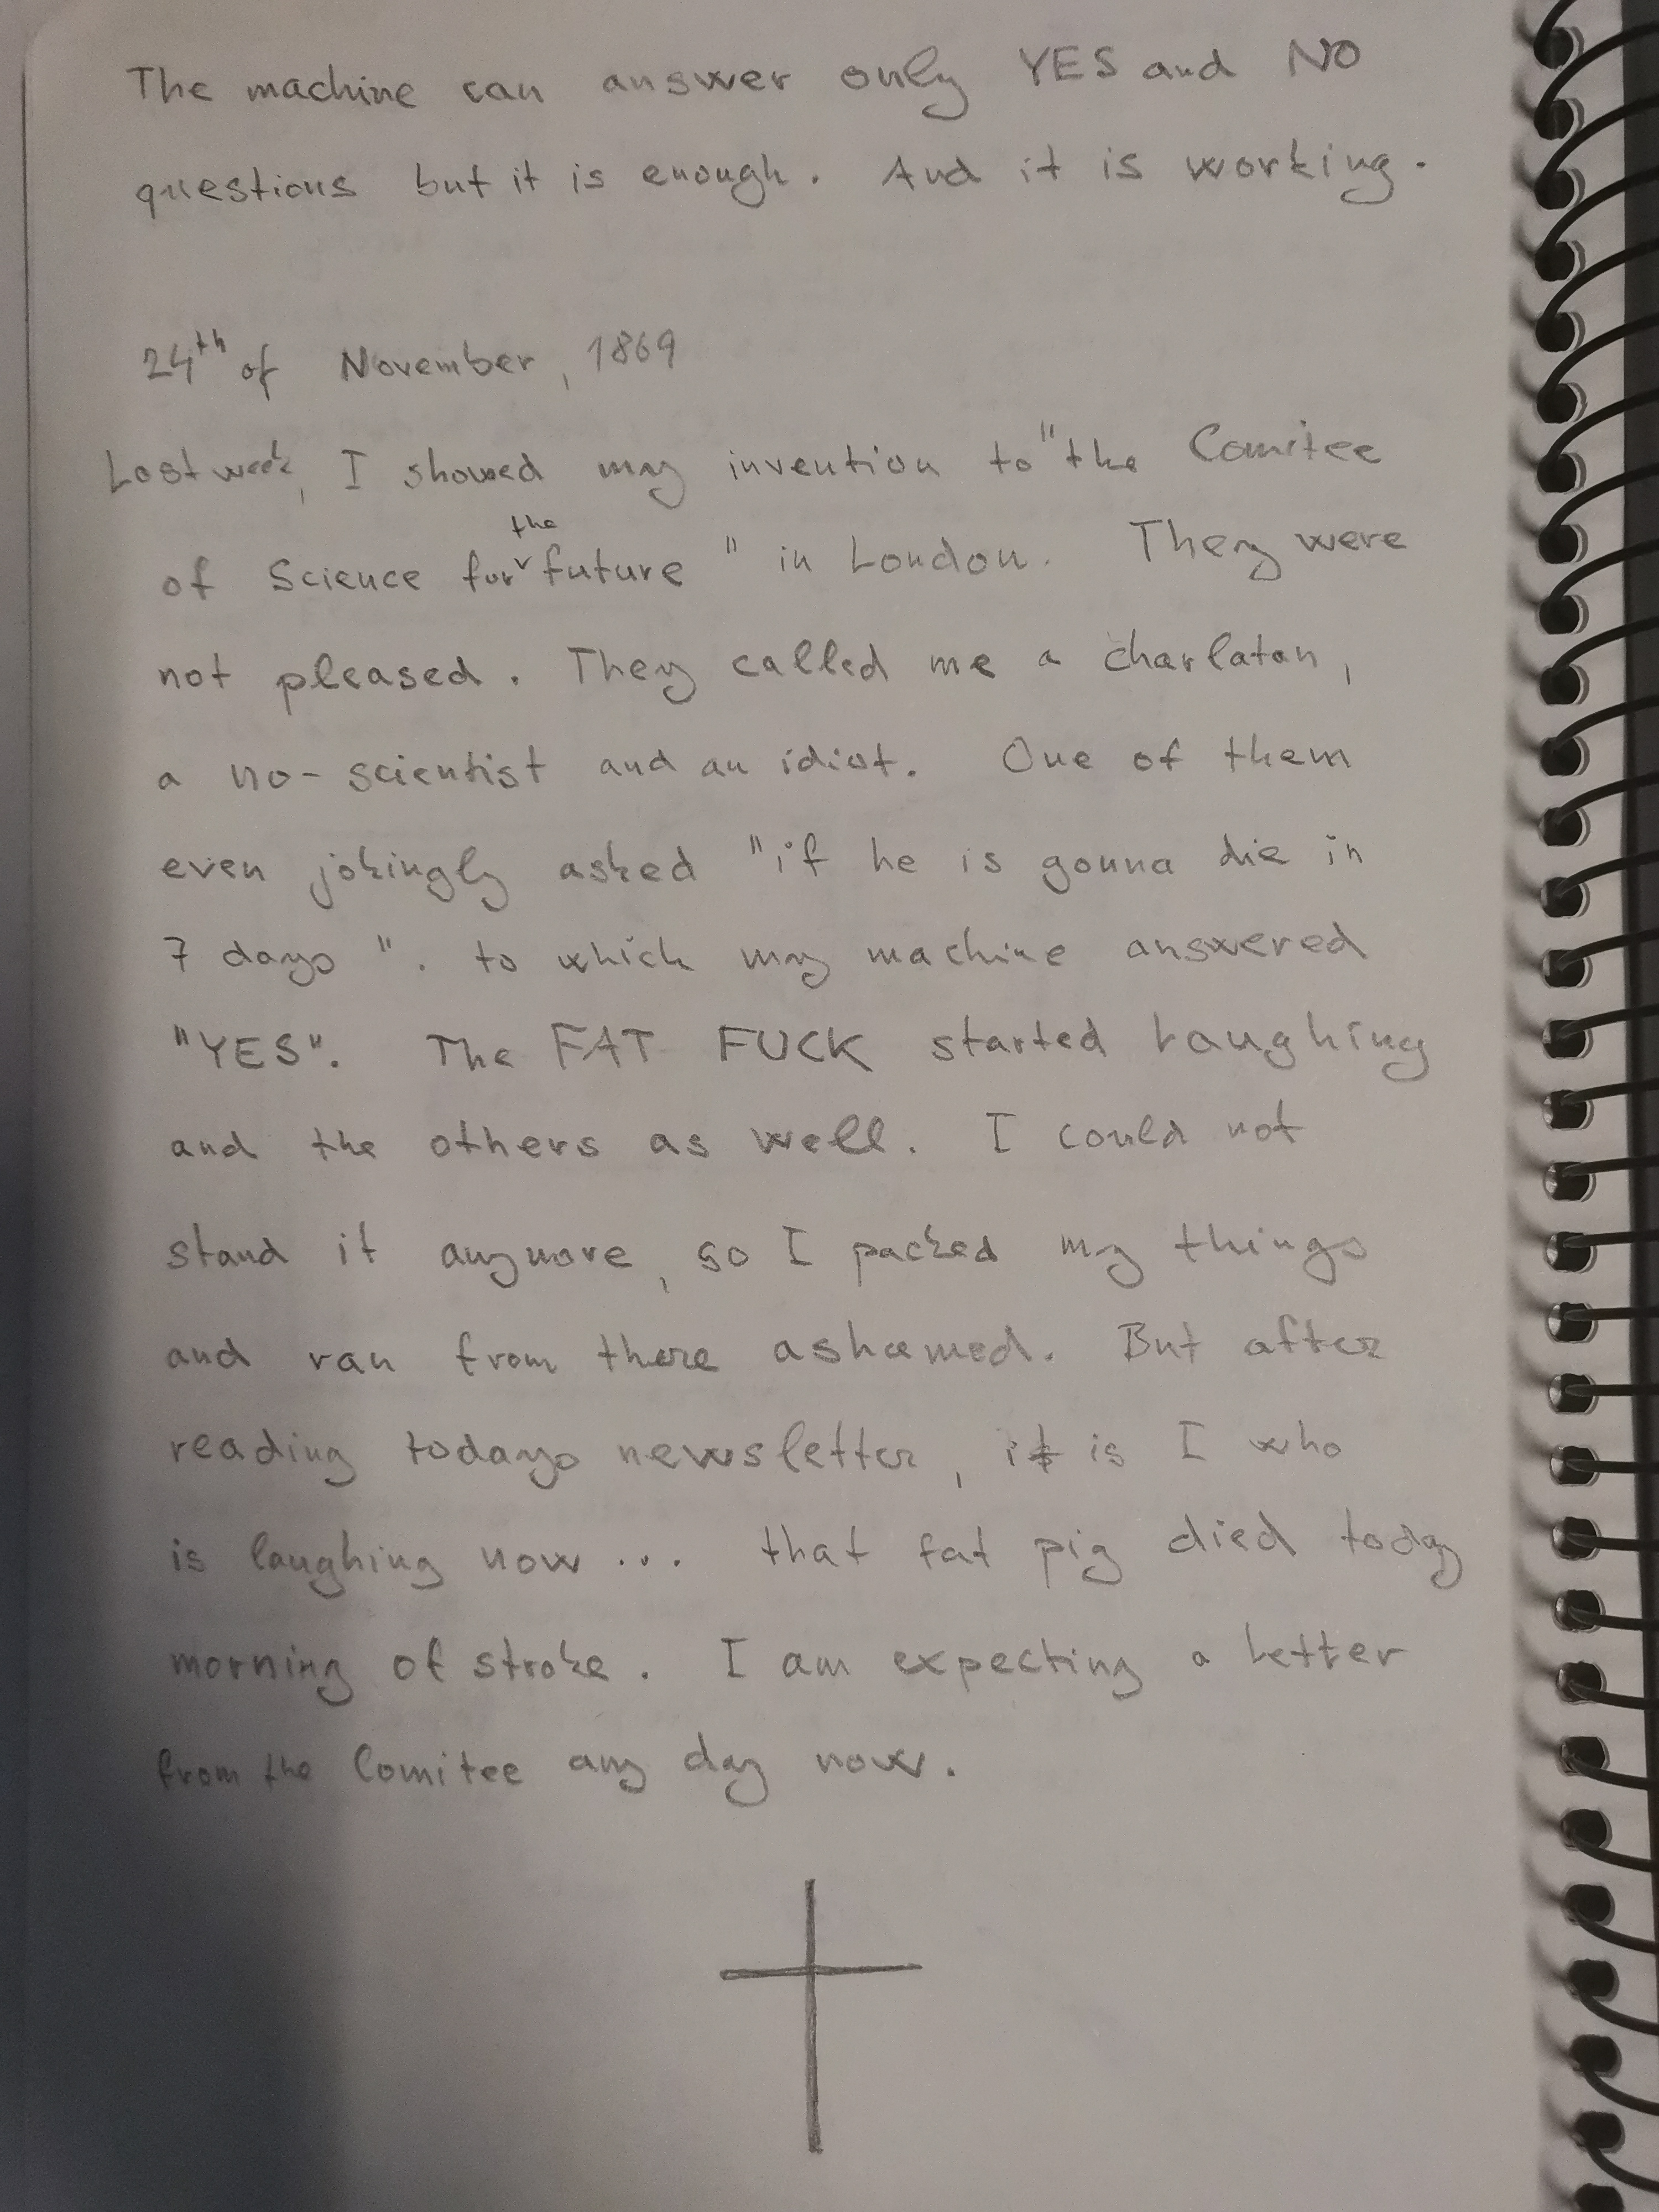 The machine can answer only YES and NO
questions but it is enough. And it is working.
24th of November, 1869
Last week, I showed my invention to "the Comitee
of Science for the future" in London. They were
not pleased. They called me a charlatan,
a no-scientist and an idiot. One of them
even jokingly asked "if he is gonna die in
7 days". to which my machine answered
"YES". The FAT FUCK started laughing
and the others as well. I could not
stand it anymore, so I packed my things
and ran from there ashamed. But after
reading todays newsletter, it is I who
is laughing now... that fat pig died today
morning of stroke. I am expecting a letter
from the Comitee any day now.